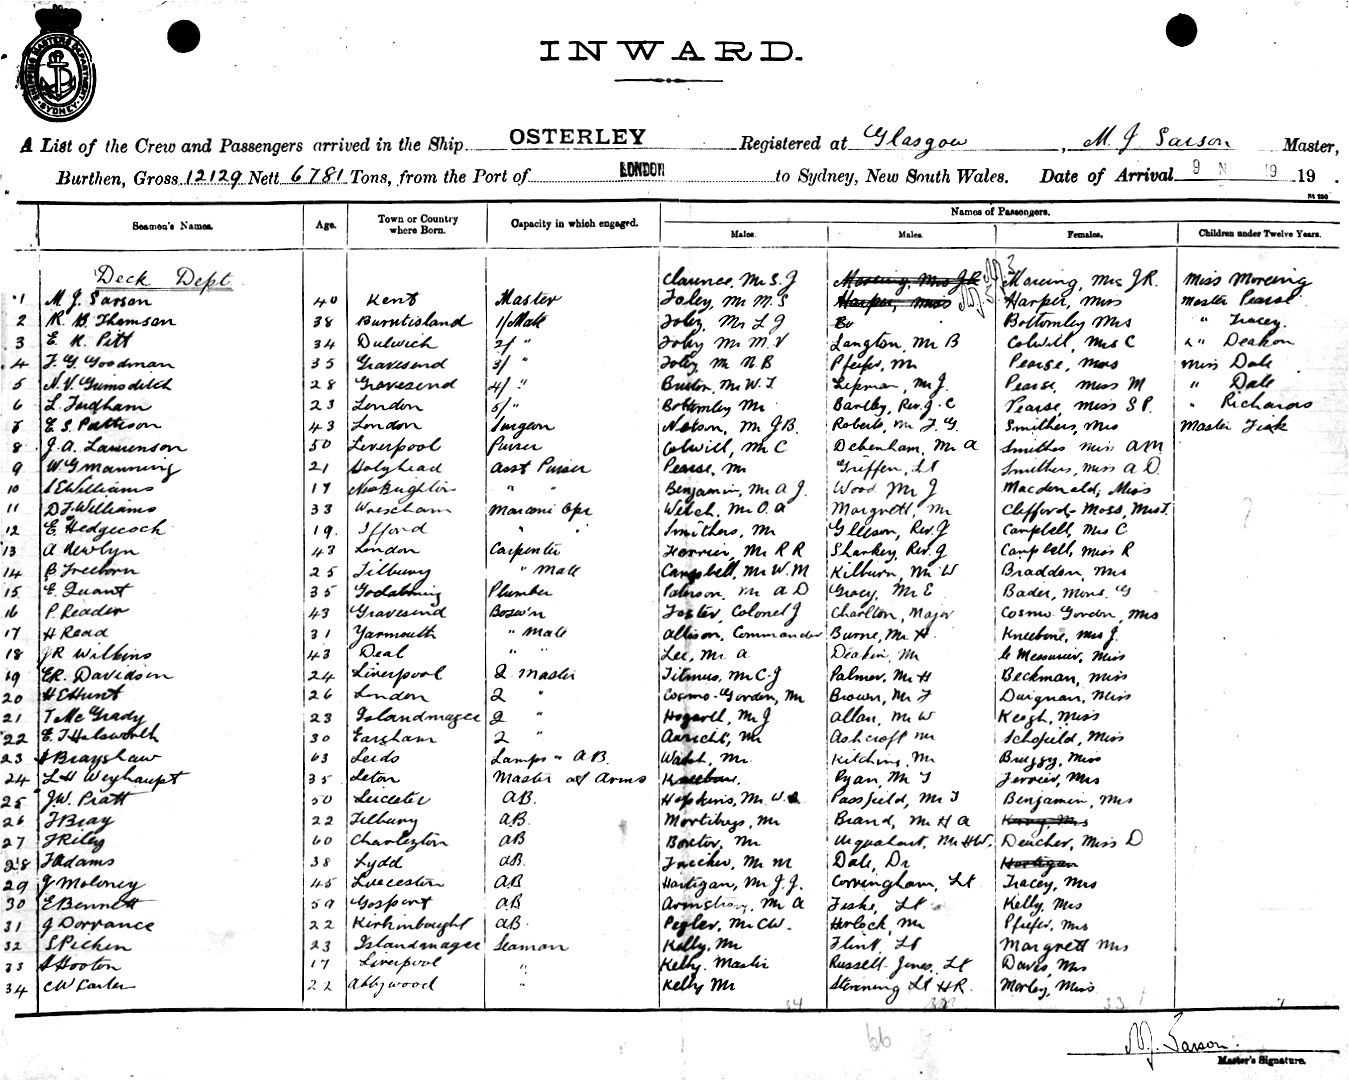 SHIPPING MASTERS DEPARTMENT SYDNEY
INWARD.
A List of the Crew and Passengers arrived in the Ship OSTERLEY Registered at Glasgow, M. J Sarson Master,
Burthen, Gross 12129 Nett 6781 Tons, from the Port of LONDON to Sydney, New South Wales. Date of Arrival 9 N 19 19 .
Seamen's Names. Age. Town or Country where Born. Capacity in which engaged. Names of Passengers.
Males. Males. Females. Children under Twelve Years.
Deck Dept Clarence, Mr S. J Moreing, Mrs J R Moreing, Mrs J R. Miss Moreing
1 M. J. Sarson 40 Kent Master Foley, Mr M. S Harper, Miss Harper, Miss Master Pearse
2 R. B. Thomson 38 Burntisland 1/Mate Foley, Mr L J Bo Bottomley Mrs " Tracey
3 E K. Pitt 34 Dulwich 2/ " Foley Mr M. V Langton, Mr B Colwill, Mrs C " Deakon
4 F. G. Goodman 35 Gravesend 3/ " Foley Mr N B Pfeifer, Mr Pearse, Miss Miss Dale
5 N. V. Grimsditch 28 Gravesend 4/ " Burton, Mr W. T Lipman, Mr J. Pearse, Miss M " Dale
6 L. Fordham 23 London 5/ " Bottomley Mr Bartley, Rev. J. C Pearse, Miss S P. " Richards
7 E. S. Pattison 43 London Surgeon Nelson, Mr J B. Roberts, Mr F. G. Smithers, Mrs Master Fisk
8 J. A. Laurenson 50 Liverpool Purser Colwill, Mr C Debenham, Mr A Smithers Miss A M
9 W. G. Manning 21 Holyhead Asst Purser Pearse, Mr Griffen, Lt Smithers, Miss A D.
10 Williams 17 New Brighton " " Benjamin, Mr A J. Wood Mr J Macdonald, Miss
11 D. J. Williams 33 Wrexham Marconi Opr Welch, Mr O. A Margrett, Mr Clifford-Moss, Miss T.
12 E. Hedgecock 19 Ifford " " Smithers, Mr Gleeson, Rev. J Campbell, Mrs C
13 A Newlyn 43 London Carpenter Ferrier, Mr R R Sharkey, Rev. J Campbell, Miss R
14 B Freeborn 25 Tilbury " Mate Campbell, Mr W. M Kilburn, Mr W Braddon, Mrs
15 E. Quant 35 Godalming Plumber Paterson, Mr A D Gracy, Mr E Bader, Mons. G
16 P. Reader 43 Gravesend Bosw'n Foster, Colonel J Charlton, Major Cosmo Gordon, Mrs
17 H Read 31 Yarmouth " Mate Allison, Commander Burne, Mr H. Kneebone, Mrs J.
18 J R Wilkins 43 Deal " " Lee, Mr A. Deakin, Mr Le Messurier, Miss
19 E R. Davidson 24 Liverpool 2 Master Titmus, Mr C. J Palmer, Mr H Beckman, Miss
20 H E Hunt 26 London 2 " Cosmo-Gordon, Mr Brown, Mr F Duignan, Miss
21 T. McGrady 23 Islandmagee 2 " Hogarth, Mr J Allan, Mr W Keogh, Miss
22 E. J Halsworth 30 Earsham 2 " Auricht, Mr Ashcroft Mr Schofield, Miss
23 Brayshaw 63 Leeds Lamps " A B. Walsh, Mr Kitching, Mr Buggy, Miss
24 L. H Weyhaupt 35 Leton Master at Arms Kneebone. Ryan, Mr T Ferrier, Mrs
25 J. W. Pratt 50 Leicester A.B. Hopkins, Mr W. Passfield, Mr T Benjamin, Mrs
26 F Bray 22 Tilbury A B. Mortiboys, Mr Brand, Mr H A
27 F Riley 60 Charleston A B Boxter, Mr Urquhart, Mr H W. Deucher, Miss D
28 F Adams 38 Lydd A B. Fincker, Mr M Dale, Dr Hartigan
29 J Moloney 45 Leicester A B Hartigan, Mr J. J. Corringham, Lt Tracey, Mrs
30 E Bennett 59 Gosport A B Armstrong, Mr A Fiske, Lt Kelly, Mrs
31 J Dorrance 22 Kirkinbought A B. Pegler, Mr C W. Horlock, Mr Pfeifer, Mrs
32 S Picken 23 Islandmagee Seaman Kelly, Mr Flint, Lt Margrett Mrs
33 Hooton 17 Liverpool " Kelly, Master Russell-Jones, Lt Davis, Mrs
34 C W Carter 22 Abbywood " Kelly Mr Stenning Lt H R. Morley, Miss
34 33 7
66
M. J. Sarson.
Master's Signature.